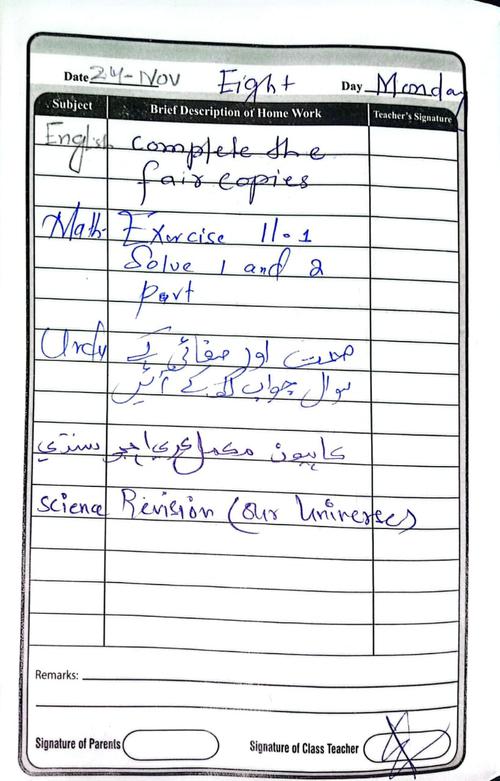 Date 24-Nov Eight Day Monday
Subject Brief Description of Home Work Teacher's Signature
English Complete the
fair copies
Math Exercise 11.1
Solve 1 and 2
part
Urdu صحت اور صفائی کے
سوال جواب لکھ کے آئیں
سنڌي ڪاپيون مڪمل ڪري اچو
Science Revision (Our Universe)
Remarks:
Signature of Parents Signature of Class Teacher